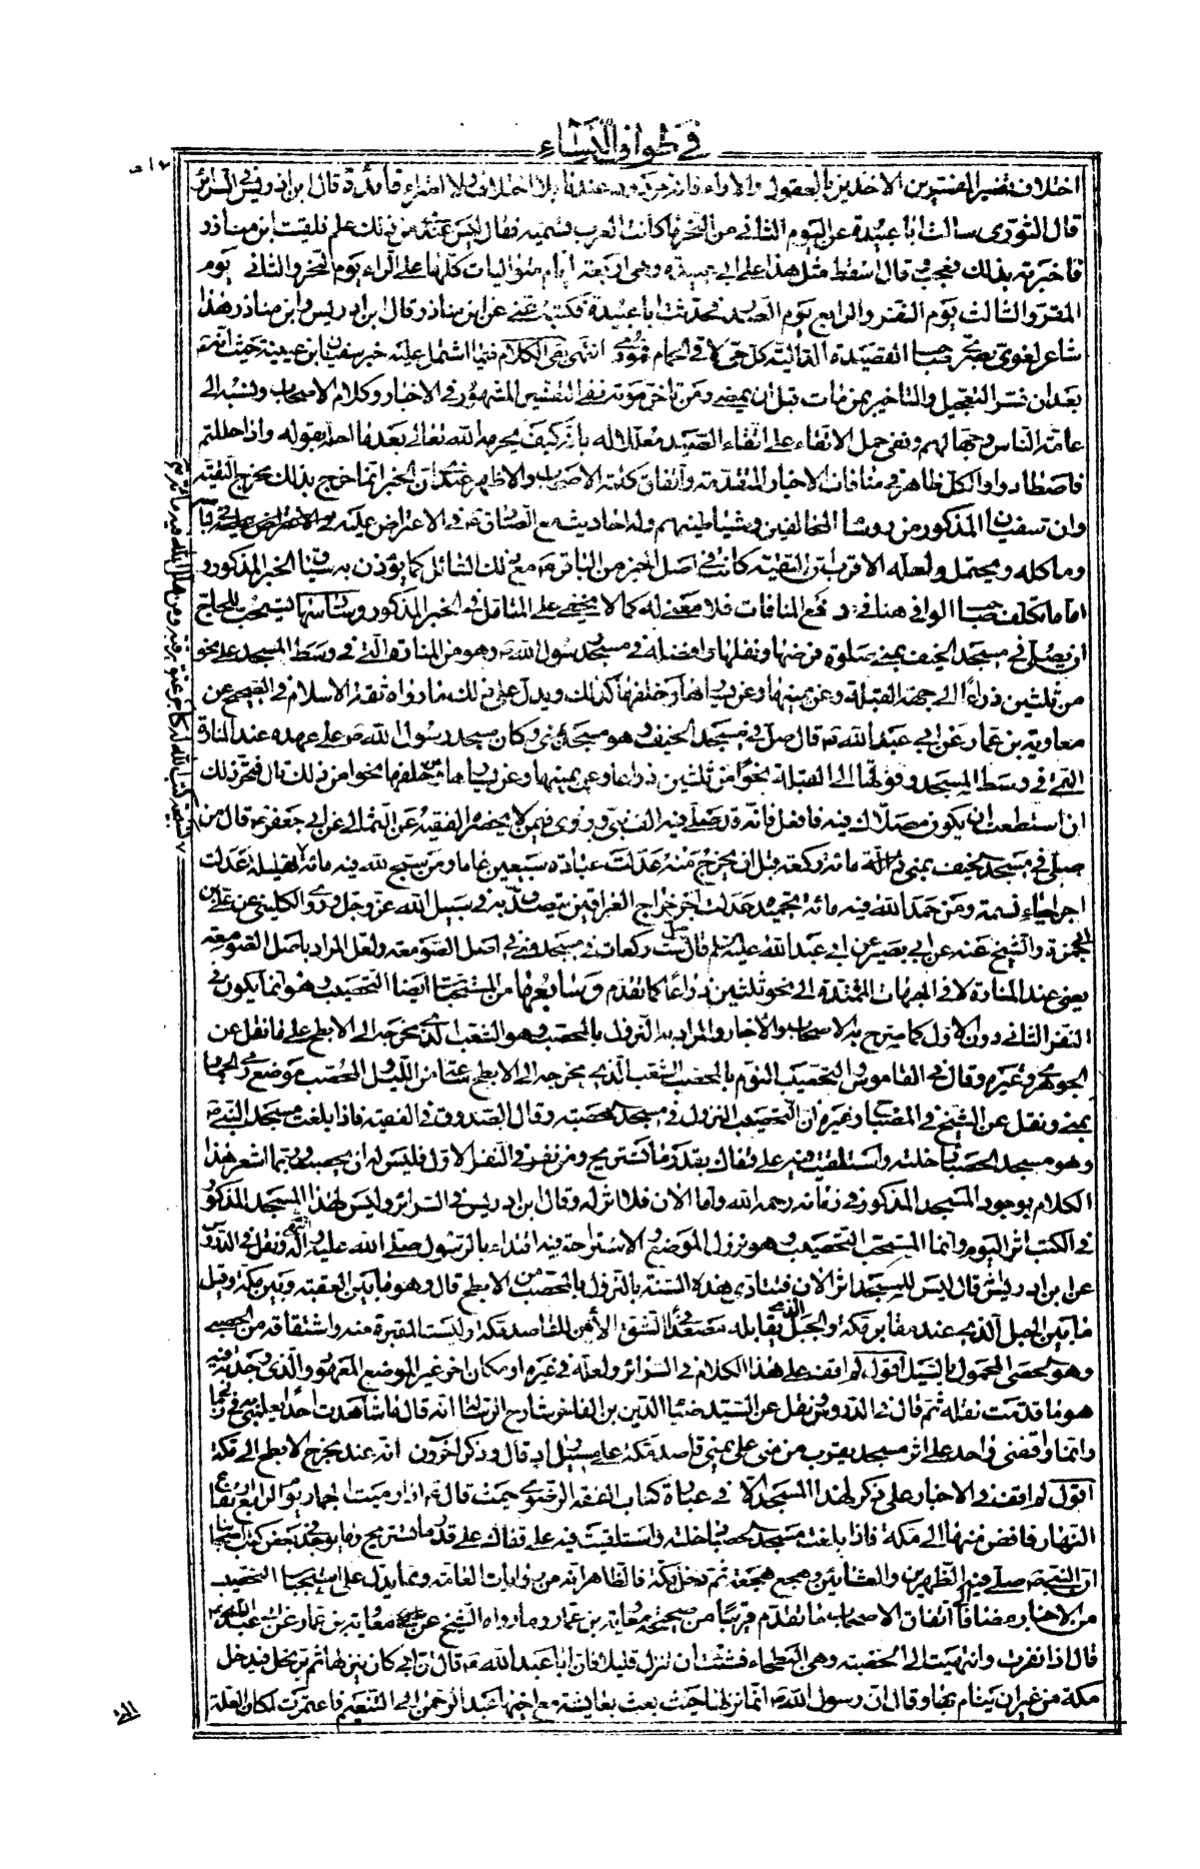 في طواف النساء
اختلاف تفسير المفسرين الاخذين بالعقول والاراء فانه حرم صيد عندنا بلا اختلاف ولا امتراء فائدة قال ابن ادريس في السرائر
قال التوزي سالت ابا عبيدة عن اليوم الثاني من النحر ما كانت العرب تسميه فقال ليس عندي من ذلك علم فلقيت ابن مناذر
فاخبرته بذلك فعجب قال اسقط مثل هذا على ابي عبيدة وهي اربعة ايام متواليات كلها على الراء يوم النحر والثاني يوم
القر والثالث يوم النفر والرابع يوم الصدر فحدثت ابا عبيدة فكتبه عني عن ابن مناذر قال ابن ادريس وابن مناذر هذا
شاعر لغوي بصري صاحب القصيدة الدالية كل حي لاقي الحمام فمودي انتهى بقي الكلام فيما اشتمل عليه خبر سفيان ابن عيينة حيث انه
بعد ان فسر التعجيل والتاخير بمن مات قبل ان يمضي ومن تاخر موته نفى التفسير المشهور في الاخبار وكلام الاصحاب ونسبه الى
عامة الناس وجهالهم ونفى حمل الاتقاء على اتقاء الصيد معللا له بانه كيف يحرمه الله تعالى بعد ما احله بقوله واذا حللتم
فاصطادوا والكل ظاهر في منافات الاخبار المتقدمة واتفاق كلمة الاصحاب والاظهر عندي ان الخبر انما خرج بذلك مخرج التقية
وان سفيان المذكور من رؤسا المخالفين وشياطينهم وله احاديث مع الصادق في الاعتراض عليه
وما كله ويحتمل ولعله الاقرب ان التقية كانت في اصل الخبر من الباقر مع ذلك السائل كما يؤذن به سياق الخبر المذكور و
اما ما تكلفه صاحب الوافي هنا في دفع المنافات فلا معنى له كما لا يخفى على المتامل في الخبر المذكور وسادسها يستحب للحاج
ان يصلي في مسجد الخيف بمنى صلوته فرضها ونفلها وافضله في مسجد رسول الله وهو من المنارة التي في وسط المسجد على نحو
من ثلثين ذراعا الى جهة القبلة وعن يمينها وعن يسارها وخلفها كذلك ويدل على ذلك ما رواه ثقة الاسلام في الصحيح عن
معاوية بن عمار عن ابي عبد الله قال صل في مسجد الخيف وهو مسجد منى وكان مسجد رسول الله على عهده عند المنارة
التي في وسط المسجد وفوقها الى القبلة نحوا من ثلثين ذراعا وعن يمينها وعن يسارها وخلفها نحوا من ذلك قال فتحر ذلك
ان استطعت ان يكون مصلاك فيه فافعل فانه قد صلى فيه الف نبي وروى في من لا يحضره الفقيه عن الثمالي عن ابي جعفر قال من
صلى في مسجد الخيف بمنى مائة ركعة قبل ان يخرج منه عدلت عبادة سبعين عاما ومن سبح لله فيه مائة عدلت
اجر احياء نسمة ومن حمد الله فيه مائة تحميدة عدلت اجر خراج العراقين يتصدق به في سبيل الله عز وجل وروى الكليني عن علي بن
ابي حمزة والشيخ عنه عن ابي بصير عن ابي عبد الله عليه السلام قال صل ست ركعات في مسجد منى في اصل الصومعة ولعل المراد باصل الصومعة
يعني عند المنارة لا في الجهات الممتدة الى نحو ثلثين ذراعا كما تقدم وسابعها من المستحبات ايضا التحصيب وهو انما يكون في
النفر الثاني دون الاول كما صرح به الاصحاب والاخبار والمراد به النزول بالمحصب وهو الشعب الذي مخرجه الى الابطح على ما نقل عن
الجوهري وغيره وقال في القاموس والتحصيب النوم بالمحصب الشعب الذي مخرجه الى الابطح ساعة من الليل والمحصب موضع رمي الجمار
بمنى ونقل عن الشيخ في المصباح وغيره ان التحصيب النزول في مسجد الحصبة وقال الصدوق في الفقيه فاذا بلغت مسجد النبي
وهو مسجد الحصباء دخلته واستلقيت فيه على قفاك بقدر ما تستريح ومن نفر في النفر الاول فليس له ان يحصب وربما اشعر هذا
الكلام بوجود المسجد المذكور في زمانه رحمه الله واما الان فلا اثر له وقال ابن ادريس في السرائر وليس لهذا المسجد المذكور
في الكتب اثر اليوم وانما المستحب التحصيب وهو نزول الموضع والاستراحة فيه اقتداء بالرسول صلى الله عليه واله ونقل في الدروس
عن ابن ادريس انه قال ليس للمسجد اثر الان فتتادى هذه السنة بالنزول بالمحصب من الابطح قال وهو ما بين العقبة وبين مكة وقيل
ما بين الجبل الذي عند مقابر مكة والجبل الذي يقابله مصعدا في الشق الأيمن للقاصد مكة وليست المقبرة منه واشتقاقه من الحصباء
وهو الحصى المحمول بالسيل اقول لم اقف على هذا الكلام في السرائر ولعله في غيره او مكان اخر غير الموضع المعهود والذي وجدته فيه
هو ما قدمت نقله ثم قال في الدروس ونقل عن السيد ضياء الدين بن الفاخر شارح الرسالة انه قال ما شاهدت احدا يعلمني به في زماني
وانما وقفني واحد على اثر مسجد بقرب من منى على يمين قاصد مكة على مسيل واد قال وذكر اخرون انه عند مخرج الابطح الى مكة
اقول لم اقف في الاخبار على ذكر لهذا المسجد الا في عبارة كتاب الفقه الرضوي حيث قال فاذا رميت الجمار يوم الرابع ارتفاع
النهار فافض منها الى مكة فاذا بلغت مسجد الحصباء دخلته واستلقيت فيه على قفاك على قدر ما تستريح وما يوجد في بعض كتب اصحابنا
ان النبي صلى فيه الظهرين والعشائين وهجع هجعة ثم دخل مكة فالظاهر انه من روايات العامة ومما يدل على استحباب التحصيب
من الاخبار مضافا الى اتفاق الاصحاب ما تقدم قريبا من صحيحة معاوية بن عمار وما رواه الشيخ عن معاوية بن عمار عن ابي عبد الله
قال اذا نفرت وانتهيت الى الحصبة وهي البطحاء فشئت ان تنزل قليلا فان ابا عبد الله قال ان ابي كان ينزلها ثم يرتحل فيدخل
مكة من غير ان ينام بها وقال ان رسول الله انما نزلها حيث بعث بعايشة مع اخيها عبد الرحمن الى التنعيم فاعتمرت لمكان العلة
التي